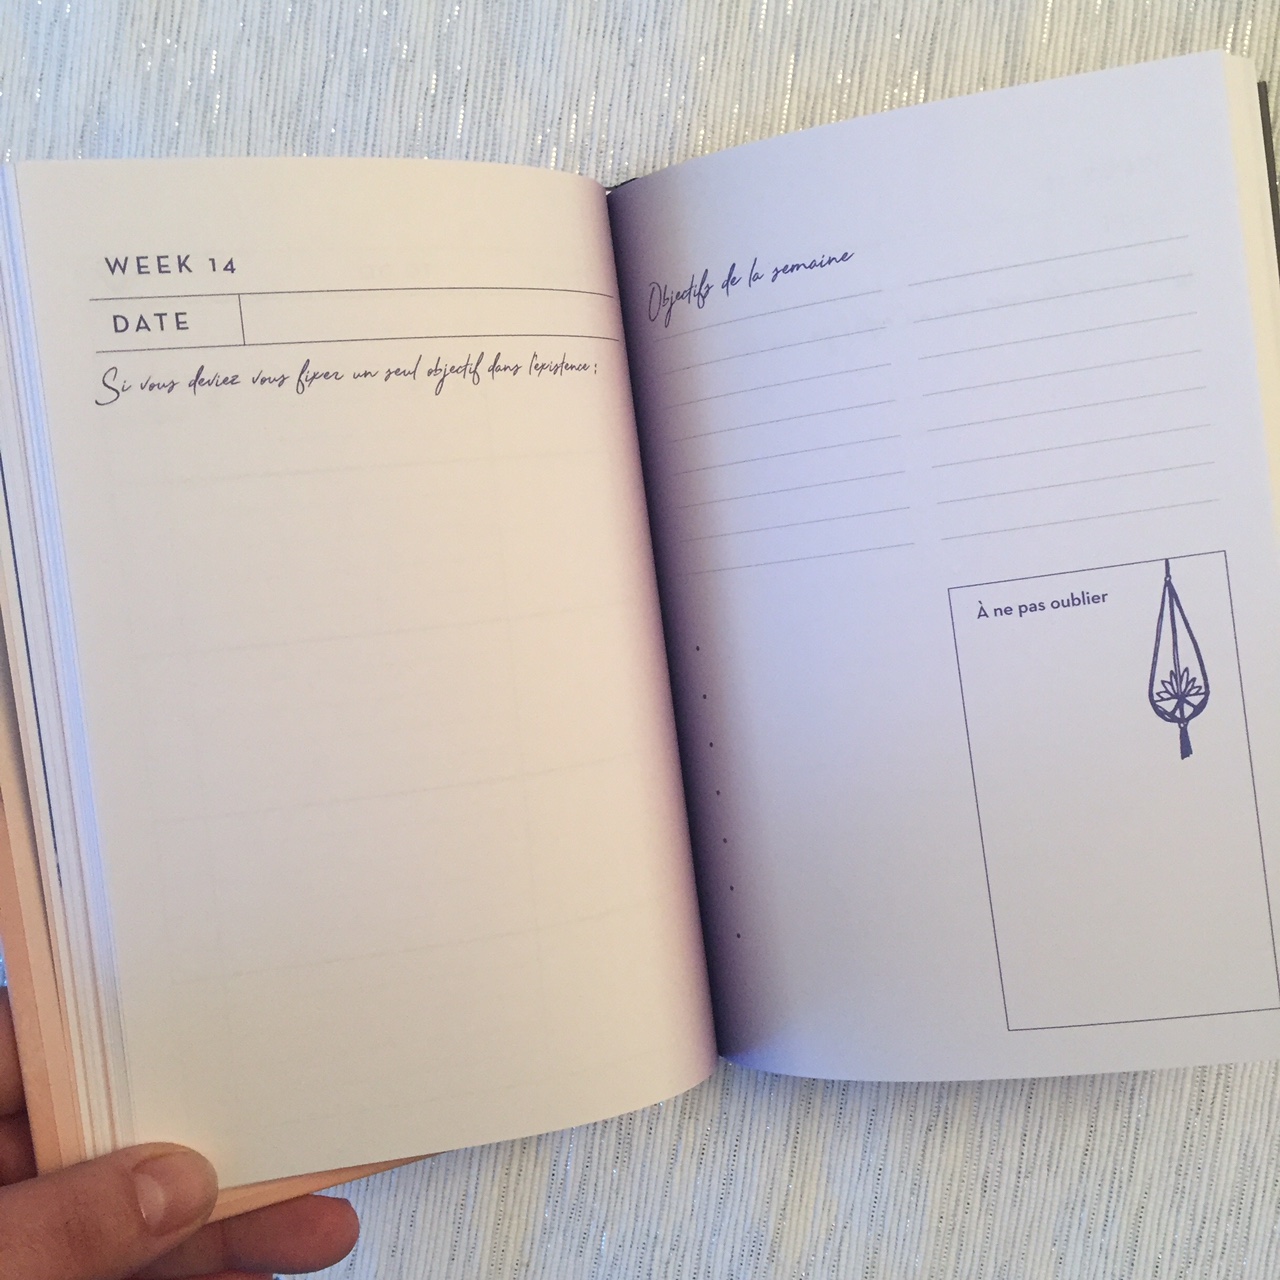 WEEK 14
DATE
Si vous deviez vous fixer un seul objectif dans l'existence :
Objectifs de la semaine
À ne pas oublier